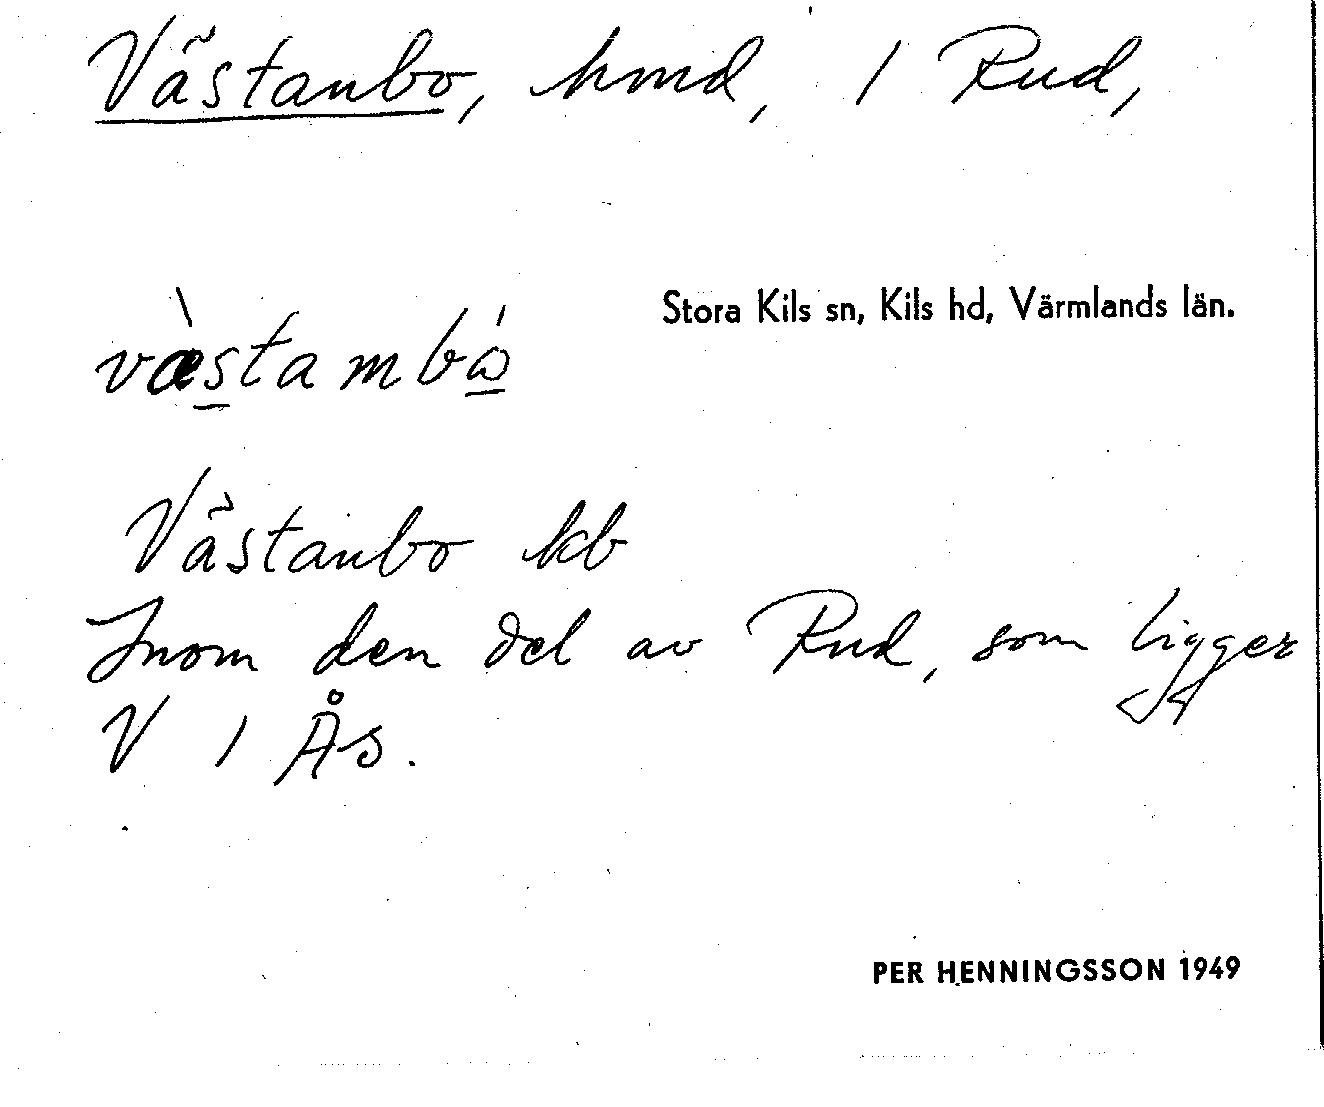 Västanbo, hmd, i Rud,
Stora Kils sn, Kils hd, Värmlands län.
Västanbo kb
Inom den del av Rud, som ligger
V i Ås.
PER HENNINGSSON 1949